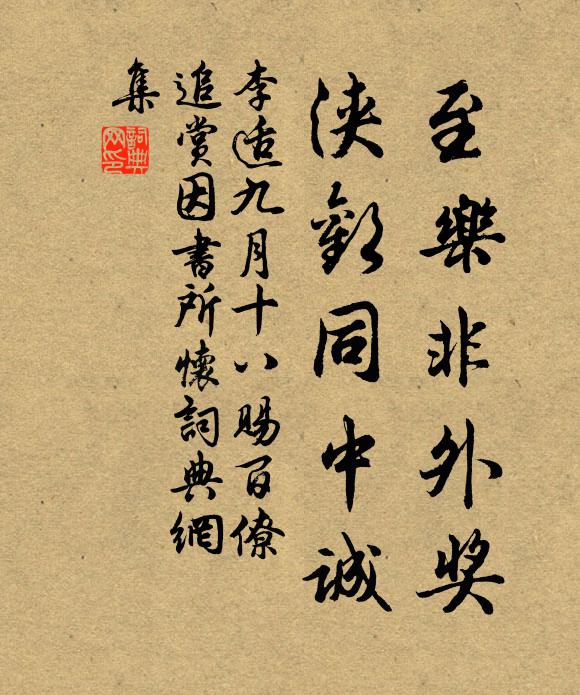 至樂非外奬
浹歡同中誠
李适九月十八賜百僚
追賞因書所懷詞典網
集
詞典
网印